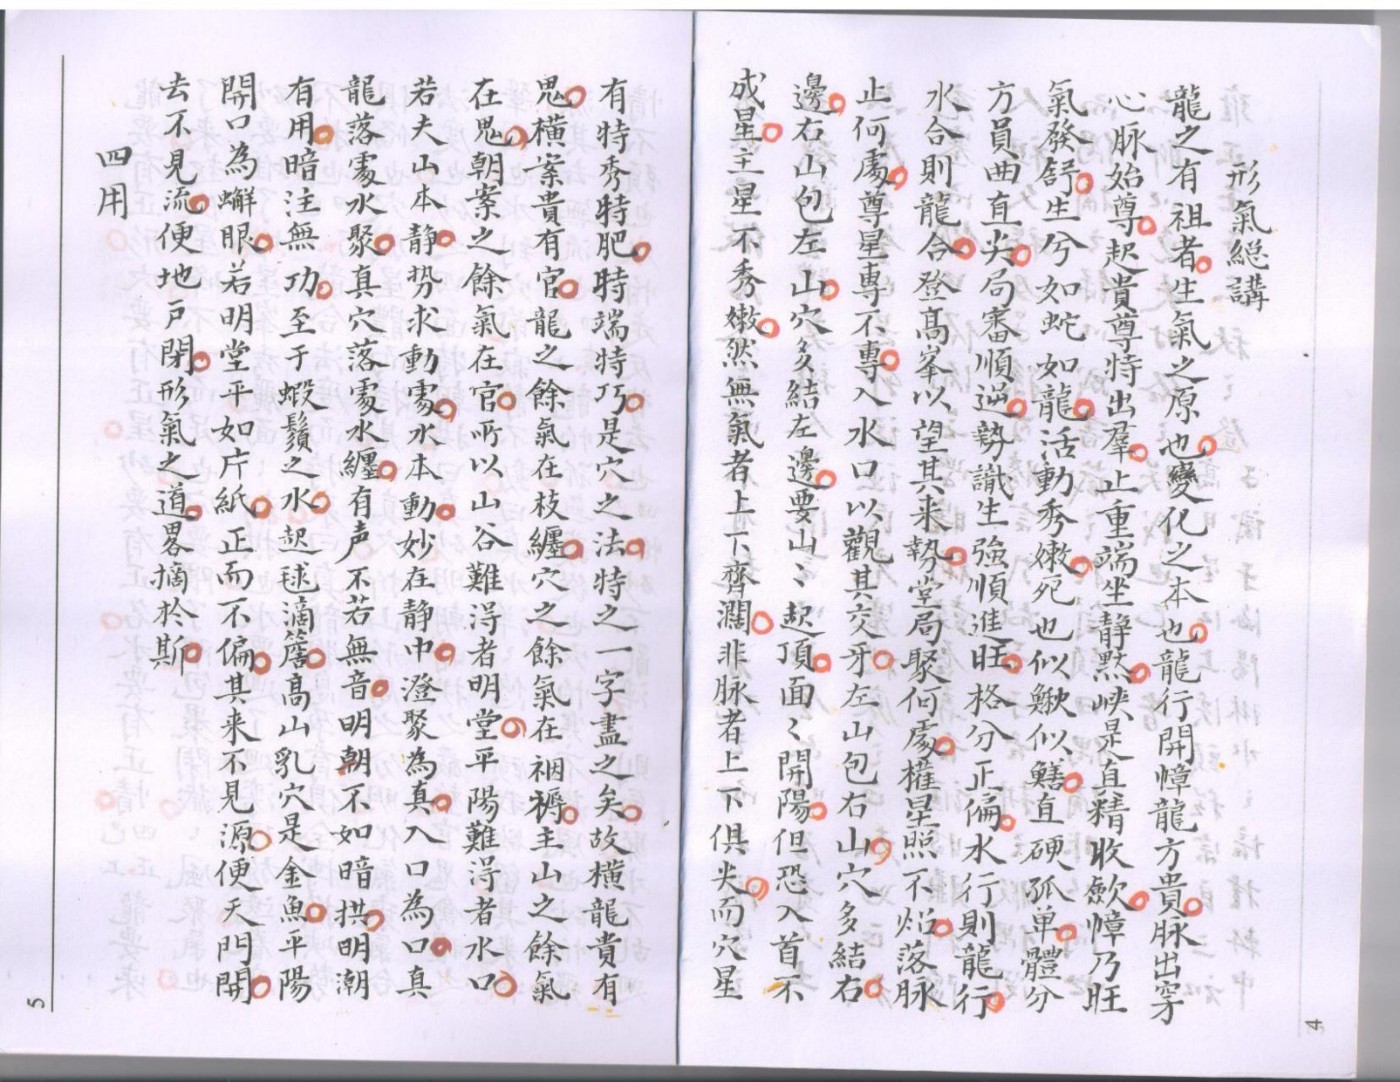 形氣總講
龍之有祖者生氣之原也變化之本也龍行開幛龍方貴脉出穿
心脉始尊起貴尊特出羣止重端坐静黙峽是真精收歛幛乃旺
氣發舒生兮如蛇如龍活動秀嫩死也似鰍似鱔直硬孤單體分
方員曲直尖局審順逆勢識生強順進旺格分正偏水行則龍行
水合則龍合登髙峯以望其来勢堂局聚何處權星照不焰落脉
止何處尊星專不專入水口以觀其交牙左山包右山穴多結右
邊右山包左山穴多結左邊要山〻起頂面〻開陽但恐入首不
成星主星不秀嫩然無氣者上下齊濶非脉者上下俱尖而穴星
4
有特秀特肥特端特巧是穴之法特之一字盡之矣故橫龍貴有
鬼橫案貴有官龍之餘氣在枝纏穴之餘氣在裀褥主山之餘氣
在鬼朝案之餘氣在官所以山谷難淂者明堂平陽難淂者水口
若夫山本静势求動處水本動妙在静中澄聚為真入口為口真
龍落處水聚真穴落處水纏有声不若無音明朝不如暗拱明潮
有用暗注無功至于蝦鬚之水起毬滴簷髙山乳穴是金魚平陽
開口為蠏眼若明堂平如片紙正而不偏其来不見源便天門開
去不見流便地戸閉形氣之道畧摘於斯
四用
5